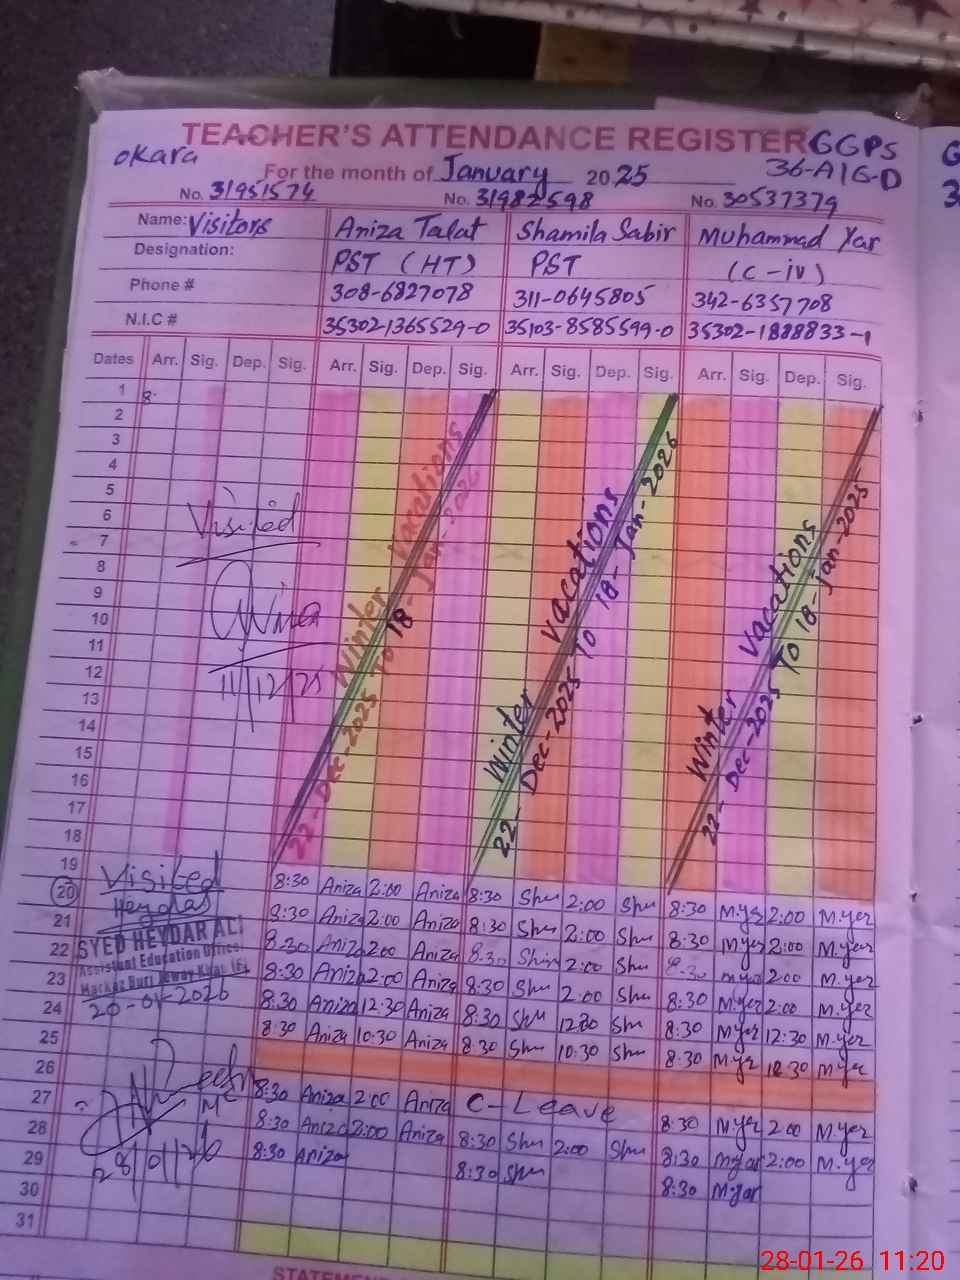 TEACHER'S ATTENDANCE REGISTER GGPS
Okara For the month of January 2025 36-A/G-D
No. 31951574 No. 31982598 No. 30537379
Name: Visitors Aniza Talat Shamila Sabir Muhammad Yar
Designation: PST (HT) PST (C-iv)
Phone # 308-6827078 311-0645805 342-6357708
N.I.C # 35302-1365529-0 35103-8585599-0 35302-1888833-1
Dates Arr. Sig. Dep. Sig. Arr. Sig. Dep. Sig. Arr. Sig. Dep. Sig. Arr. Sig. Dep. Sig.
1 8:
2
3
4
5
6
7
8
9
10
11
12
13
14
15
16
17
18
19
Visited
11/12/25
Winter Vacations
22-Dec-2025 To 18-Jan-2026
Winter Vacations
22-Dec-2025 To 18-Jan-2026
Winter Vacations
22-Dec-2025 To 18-Jan-2025
Visited
Heydar
SYED HEYDAR ALI
Assistant Education Officer
20-01-2026
20 8:30 Aniza 2:00 Aniza 8:30 Shu 2:00 Shu 8:30 M.yar 2:00 M.yar
21 8:30 Aniza 2:00 Aniza 8:30 Shu 2:00 Shu 8:30 M.yar 2:00 M.yar
22 8:30 Aniza 2:00 Aniza 8:30 Shu 2:00 Shu 8:30 M.yar 2:00 M.yar
23 8:30 Aniza 2:00 Aniza 8:30 Shu 2:00 Shu 8:30 M.yar 2:00 M.yar
24 8:30 Aniza 12:30 Aniza 8:30 Shu 12:30 Shu 8:30 M.yar 12:30 M.yar
25 8:30 Aniza 10:30 Aniza 8:30 Shu 10:30 Shu 8:30 M.yar 10:30 M.yar
26
27 8:30 Aniza 2:00 Aniza C-Leave 8:30 M.yar 2:00 M.yar
28 8:30 Aniza 2:00 Aniza 8:30 Shu 2:00 Shu 8:30 M.yar 2:00 M.yar
29 8:30 Aniza 8:30 Shu 8:30 M.yar
30
31
28/01/26
STATEMEN
28-01-26 11:20